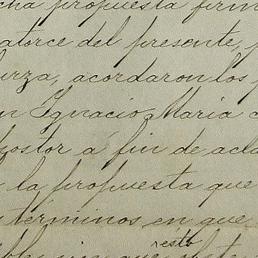 cha propuesta firm
atorce del presente,
urza, acordaron los
n Ignacio Maria
a fin de acla
la propuesta que
términos en que
resto